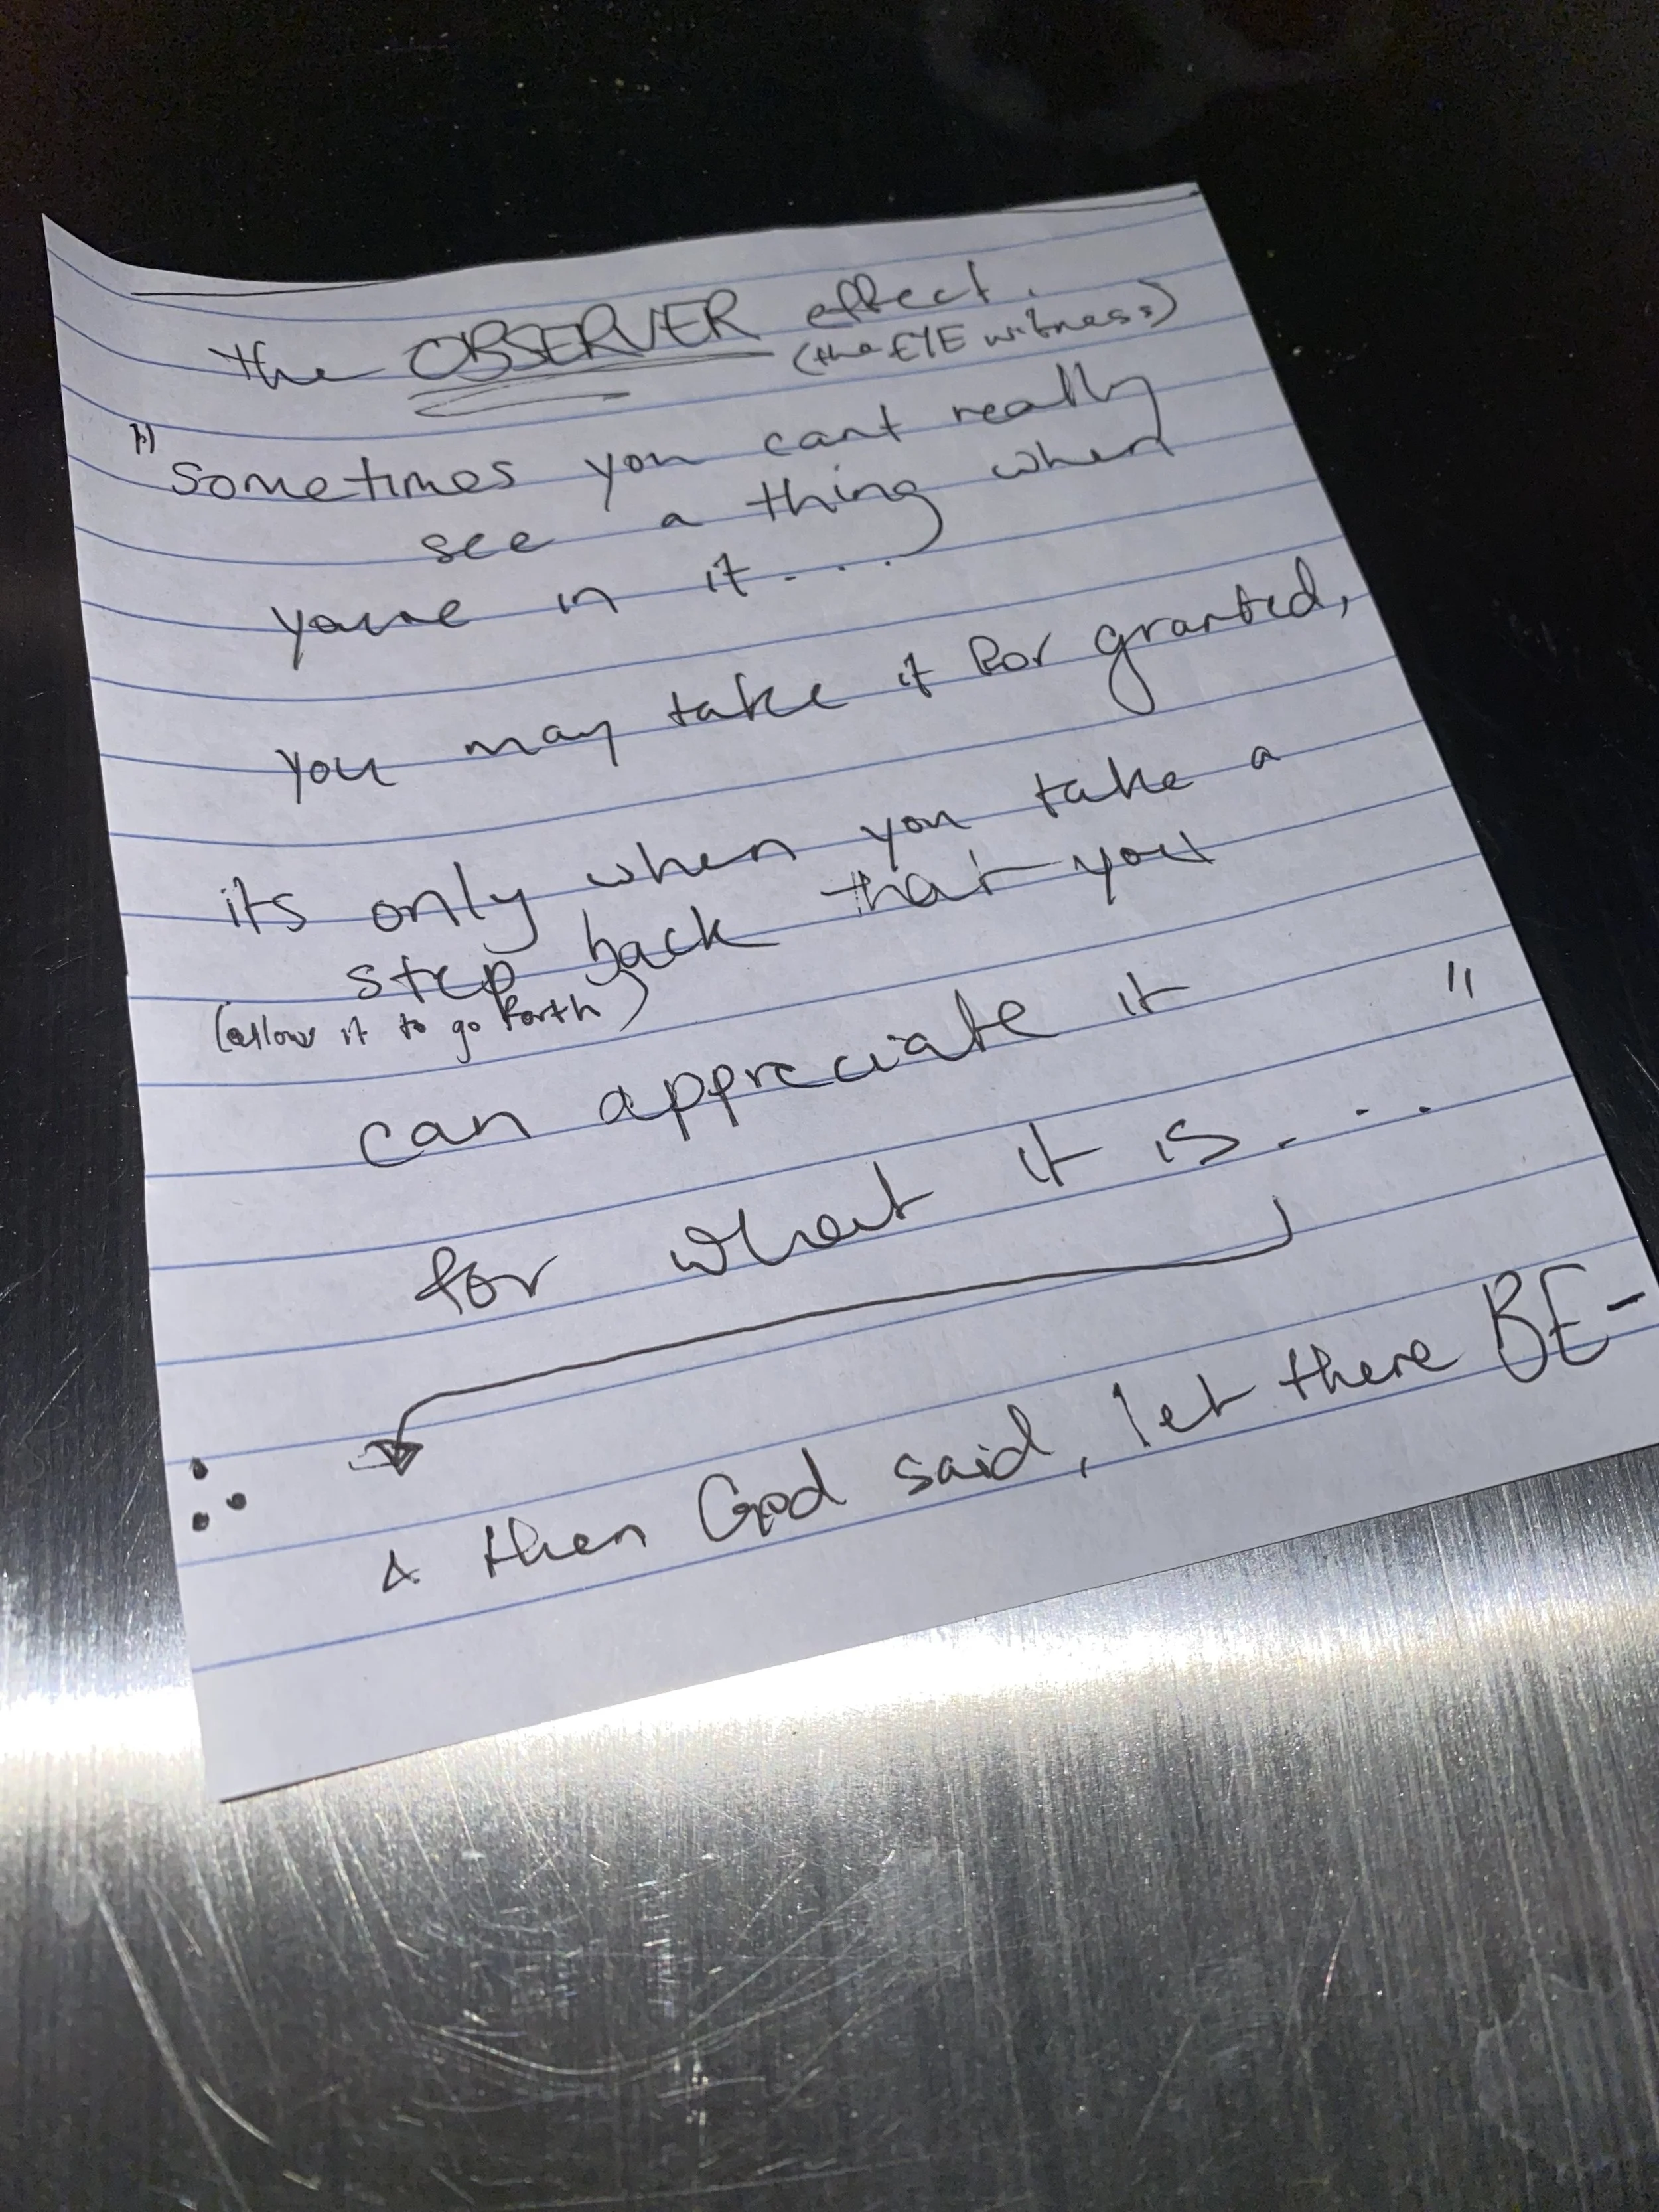 the OBSERVER effect.
(the EYE witness)
"sometimes you cant really
see a thing when
youre in it....
you may take it for granted,
its only when you take a
step back that you
(allow it to go forth)
can appreciate it "
for what it is....
& then God said, let there BE-